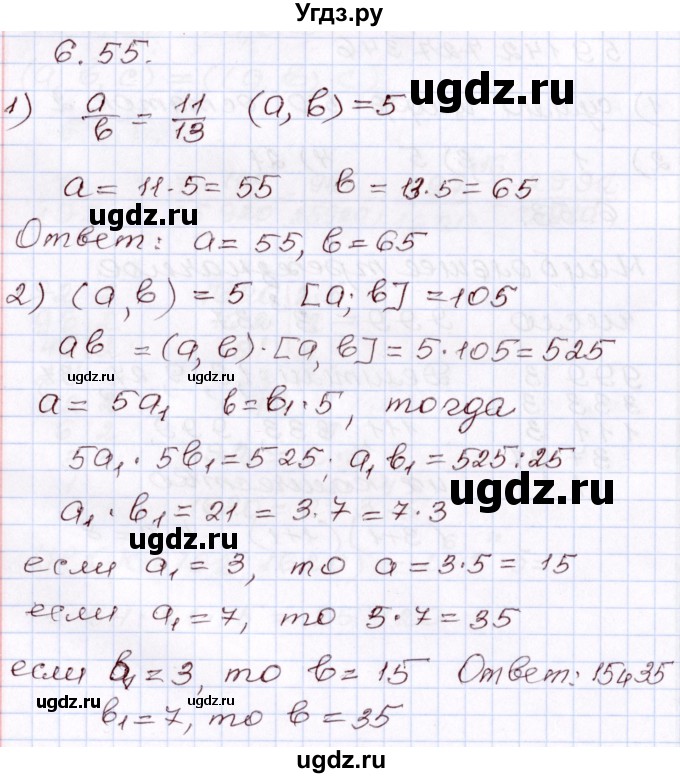 Угдз.ру
6.55.
1) a/b = 11/13 (a, b) = 5
ugdz.ru
a = 11·5 = 55 b = 13·5 = 65
ugdz.ru
Ответ: a = 55, b = 65
2) (a, b) = 5 [a; b] = 105
ab = (a, b)·[a, b] = 5·105 = 525
ugdz.ru ugdz.ru
a = 5a₁ b = b₁·5, тогда
5a₁·5b₁ = 525; a₁b₁ = 525:25
ugdz.ru
a₁·b₁ = 21 = 3·7 = 7·3
ugdz.ru
если a₁ = 3, то a = 3·5 = 15
если a₁ = 7, то 5·7 = 35
если b₁ = 3, то b = 15 Ответ: 15и35
b₁ = 7, то b = 35
ugdz.ru ugdz.ru
ugdz.ru